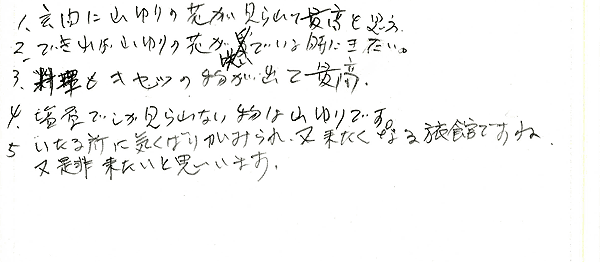 1、玄関に山ゆりの花が見られて最高と思う。
2、できれば山ゆりの花が咲いている時に来たい。
3、料理もキセツの物が出て最高。
4、塩原でしか見られない物は山ゆりです。
5 いたる所に気くばりがみられ、又来たくなる旅館ですね、
又是非来たいと思います。